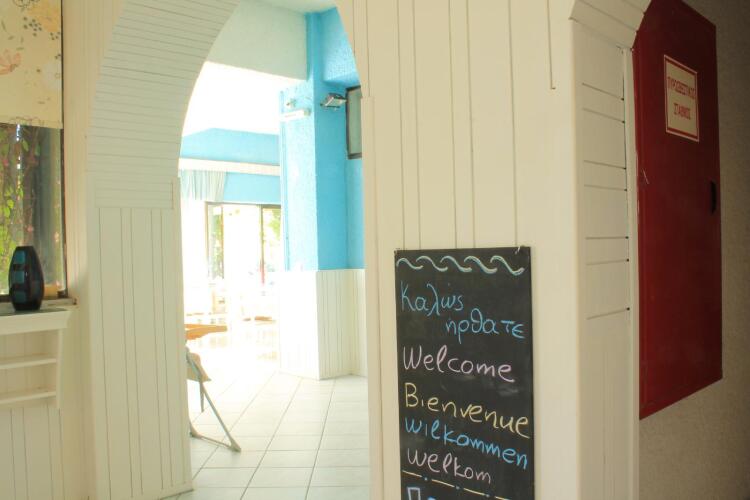 Καλώς
ήρθατε
Welcome
Bienvenue
Wilkommen
Welkom
ΠΥΡΟΣΒΕΣΤΙΚΟΣ
ΣΤΑΘΜΟΣ